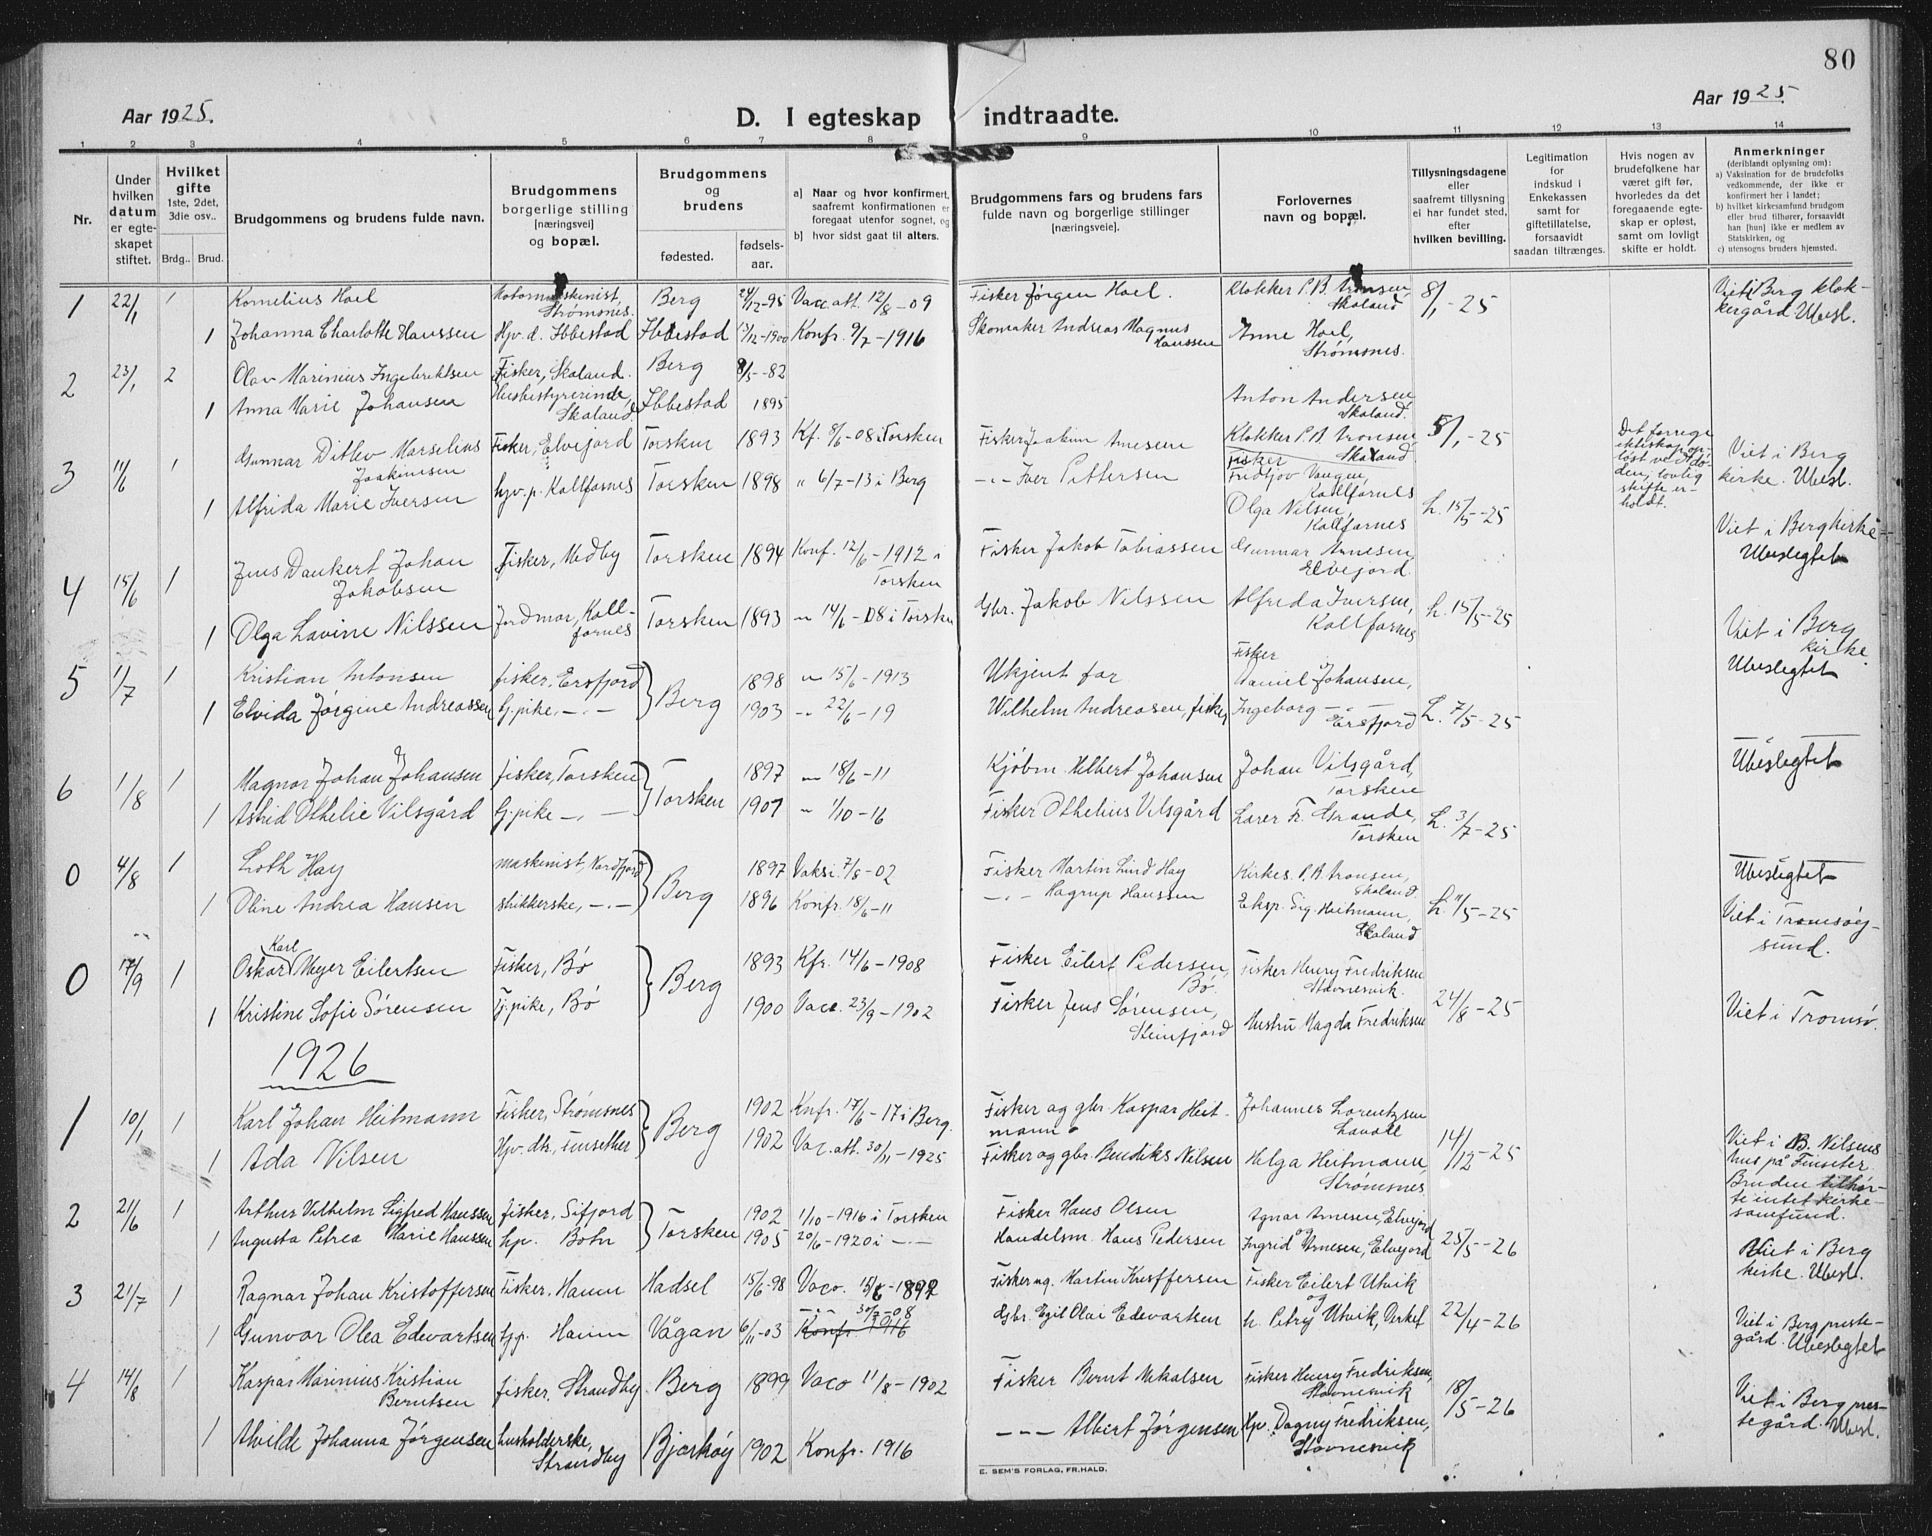 80
Aar 1925.
D. I egteskap indtraadte.
Aar 1925.
1 2 3 4 5 6 7 8 9 10 11 12 13 14
Nr.
Under hvilken datum er egteskapet stiftet.
Hvilket gifte 1ste, 2det, 3die osv..
Brdg.. Brud.
Brudgommens og brudens fulde navn.
Brudgommens borgerlige stilling [næringsvei] og bopæl.
Brudgommens og brudens
fødested.
fødsels-aar.
a) Naar og hvor konfirmert, saafremt konfirmationen er foregaat utenfor sognet, og
b) hvor sidst gaat til alters.
Brudgommens fars og brudens fars fulde navn og borgerlige stillinger [næringsvei].
Forlovernes navn og bopæl.
Tillysningsdagene eller saafremt tillysning ei har fundet sted, efter hvilken bevilling.
Legitimation for indskud i Enkekassen samt for giftetillatelse, forsaavidt saadan tiltrænges.
Hvis nogen av brudefolkene har været gift før, hvorledes da det foregaaende egteskap er opløst, samt om lovligt skifte er holdt.
Anmerkninger (deriblandt oplysning om): a) Vaksination for de brudefolks vedkommende, der ikke er konfirmert her i landet; b) hvilket kirkesamfund brudgom eller brud tilhører, forsaavidt han [hun] ikke er medlem av Statskirken, og c) utensogns bruders hjemsted.
1 22/1 1 Kornelius Hoel Motormaskinist, Strømsnes. Berg 24/12-95 Vacc. att. 12/8-09 Fisker Jørgen Hoel. Klokker P. B. Aronsen, Skaland 8/1-25 Viet i Berg klokkergård Ubesl.
1 Johanna Charlotte Hanssen Hjv. d. Ibbestad Ibbestad 13/12-1900 Konfr. 9/7-1916 Skomaker Andreas Magnus Hanssen Anne Hoel, Strømsnes.
2 23/1 2 Olav Marinius Ingebriktsen Fisker, Skaland. Berg 8/5-82
1 Anna Marie Johansen Husbestyrerinde, Skaland Ibbestad 1895 Anton Andersen Skaland. Klokker P. B. Aronsen Skaland 5/1-25 Det forrige ekteskap opløst ved døden, lovlig skifte er holdt. Viet i Berg kirke. Ubesl.
3 11/6 1 Gunnar Ditlev Marselius Joakimsen Fisker, Elvejord Torsken 1893 Kf. 8/6-08 i Torsken Fisker Joakim Arnesen Fisker Fridtjov Vangen, Kallfarnes
1 Alfrida Marie Iversen hjv. p. Kallfarnes Torsken 1898 " 6/7-13 i Berg -"- Iver Pettersen Olga Nilsen, Kallfarnes L. 15/5-25 Viet i Berg kirke Ubeslegtet
4 15/6 1 Jens Dankert Johan Jakobsen Fisker, Medby Torsken 1894 Konf. 12/6-1912 i Torsken Fisker Jakob Tobiassen Gunnar Arnesen Elvejord.
1 Olga Lavine Nilssen Jordmor, Kallfarnes Torsken 1893 -"- 14/6-08 i Torsken Gbr. Jakob Nilssen Alfrida Iversen, Kallfarnes L. 15/5-25 Viet i Berg kirke. Ubeslegtet
5 11/7 1 Kristian Antonsen fisker, Ersfjord Berg 1898 -"- 15/6-1913 Ukjent far Fisker Daniel Johansen,
1 Elvida Jørgine Andreassen tj. pike, -"- 1903 -"- 22/6-19 Wilhelm Andreasen, fisker Ingeborg -"- Ersfjord L. 7/5-25 Ubeslegtet
6 1/8 1 Magnar Johan Johansen fisker, Torsken Torsken 1897 -"- 18/6-11 Kjøbm. Helbert Johansen Johan Vilsgård, Torsken
1 Astrid Othelie Vilsgård tj. pike -"- 1901 " 1/10-16 Fisker Othelius Vilsgård Lærer Fr. Grande, Torsken L. 3/7-25 Ubeslegtet
0 4/8 1 Loth Hay maskinist, Nordfjord Berg 1897 Vaksi. 7/8-02 Fisker Martin Lind Hay Kirkes. P. B. Aronsen, Skaland.
1 Oline Andrea Hansen strikkerske, -"- 1896 Konfr. 18/6-11 -"- Hagrup Hanssen Eksp. Sig. Heitmann, Skaland L. 11/5-25 Viet i Tromsøysund.
0 17/9 1 Oskar Karl Meyer Eilertsen Fisker, Bø Berg 1893 Kfr. 14/6-1908 Fisker Eilert Pedersen, Bø. Fisker Henry Fredriksen Stavnesvik.
1 Kristine Sofie Sørensen Tj. pike, Bø 1900 Vacc. 23/9-1902 Fisker Jens Sørensen, Steinfjord Hustru Magda Fredriksen 24/8-25 Viet i Tromsø.
1926
1 10/1 1 Karl Johan Heitmann Fisker, Strømsnes Berg 1902 Knfr. 17/6-17 i Berg. Fisker og gbr. Kaspar Heitmann Johannes Lorentzsen Lavoll
1 Ada Nilsen Hjv. dtr, Finsether 1902 Vac. att. 30/11-1925 Fisker og gbr. Bendiks Nilsen Helga Heitmann, Strømsnes. 14/12-25 Viet i B. Nilsens hus på Finseter. Bruden tilhørte intet kirkesamfund.
2 21/6 1 Arthur Vilhelm Sigfred Hanssen fisker, Sifjord Torsken 1902 1/10-1916 i Torsken Fisker Hans Olsen Agnar Arnesen, Elvejord
1 Augusta Petrea Marie Hanssen hp. Botn 1905 20/6-1920 i -"- Handelsm. Hans Pedersen og Ingrid Arnesen, Elvejord 25/5-26 Viet i Berg kirke. Ubesl.
3 21/7 1 Ragnar Johan Kristoffersen Fisker, Hamn Hadsel 15/6-98 Vacc. 15/6-1897 Fisker Martin Kristoffersen Fisker Eilert Utvik og
1 Gunvor Olea Edvartsen tjp. Hamn Vågan 6/11-03 -"- 30/7-08 Konfr. 1916 Gbr. Egil Olai Edevartsen h. Petry Utvik, Verket 22/4-26 Viet i Berg prestegård. Ubeslegtet
4 14/8 1 Kaspar Marinius Kristian Berntsen fisker, Strandby Berg 1899 Vacc 11/8-1902 Fisker Bernt Nikolsen Fisker Henry Fredriksen, Stavnesvik 18/5-26 Viet i Berg prestegård. Ubesl.
1 Alvilde Johanna Jørgensen husholderske, Strandby Bjarkøy 1902 Konfr. 1916 -"- Albert Jørgensen Hp. Dagny Fredriksen, Stavnesvik
E. SEM'S FORLAG, FR.HALD.